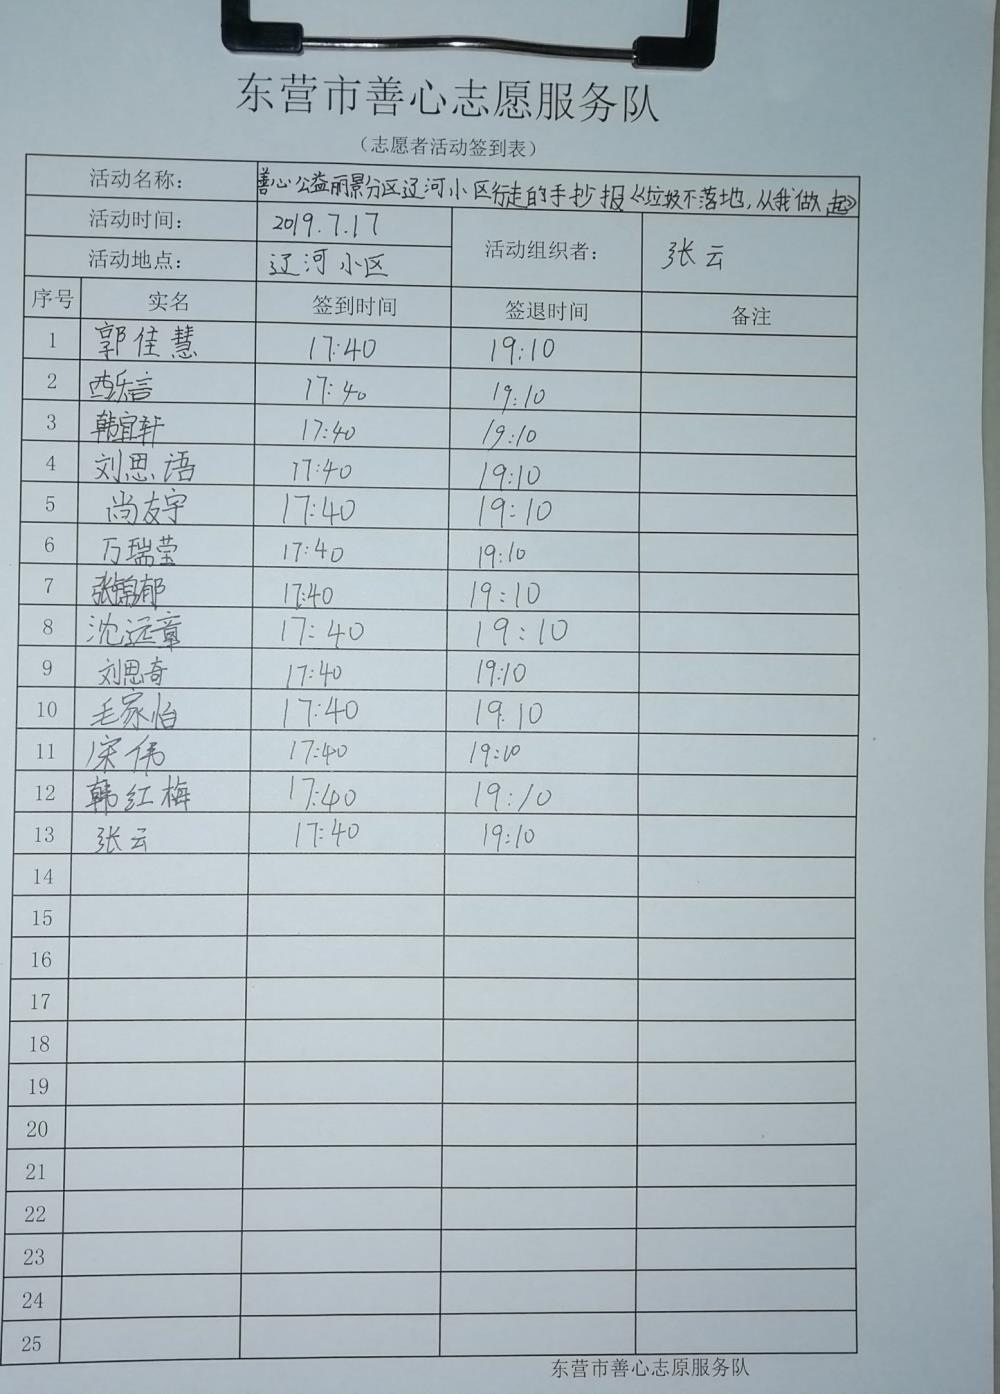 东营市善心志愿服务队
（志愿者活动签到表）
活动名称： 善心公益丽景分区辽河小区行走的手抄报《垃圾不落地，从我做起》
活动时间： 2019.7.17 活动组织者： 张云
活动地点： 辽河小区
序号 实名 签到时间 签退时间 备注
1 郭佳慧 17:40 19:10
2 西乐言 17:40 19:10
3 韩宜轩 17:40 19:10
4 刘思语 17:40 19:10
5 尚友宇 17:40 19:10
6 万瑞莹 17:40 19:10
7 张锦郁 17:40 19:10
8 沈远章 17:40 19:10
9 刘思奇 17:40 19:10
10 毛家怡 17:40 19:10
11 宋伟 17:40 19:10
12 韩红梅 17:40 19:10
13 张云 17:40 19:10
14
15
16
17
18
19
20
21
22
23
24
25
东营市善心志原服务队